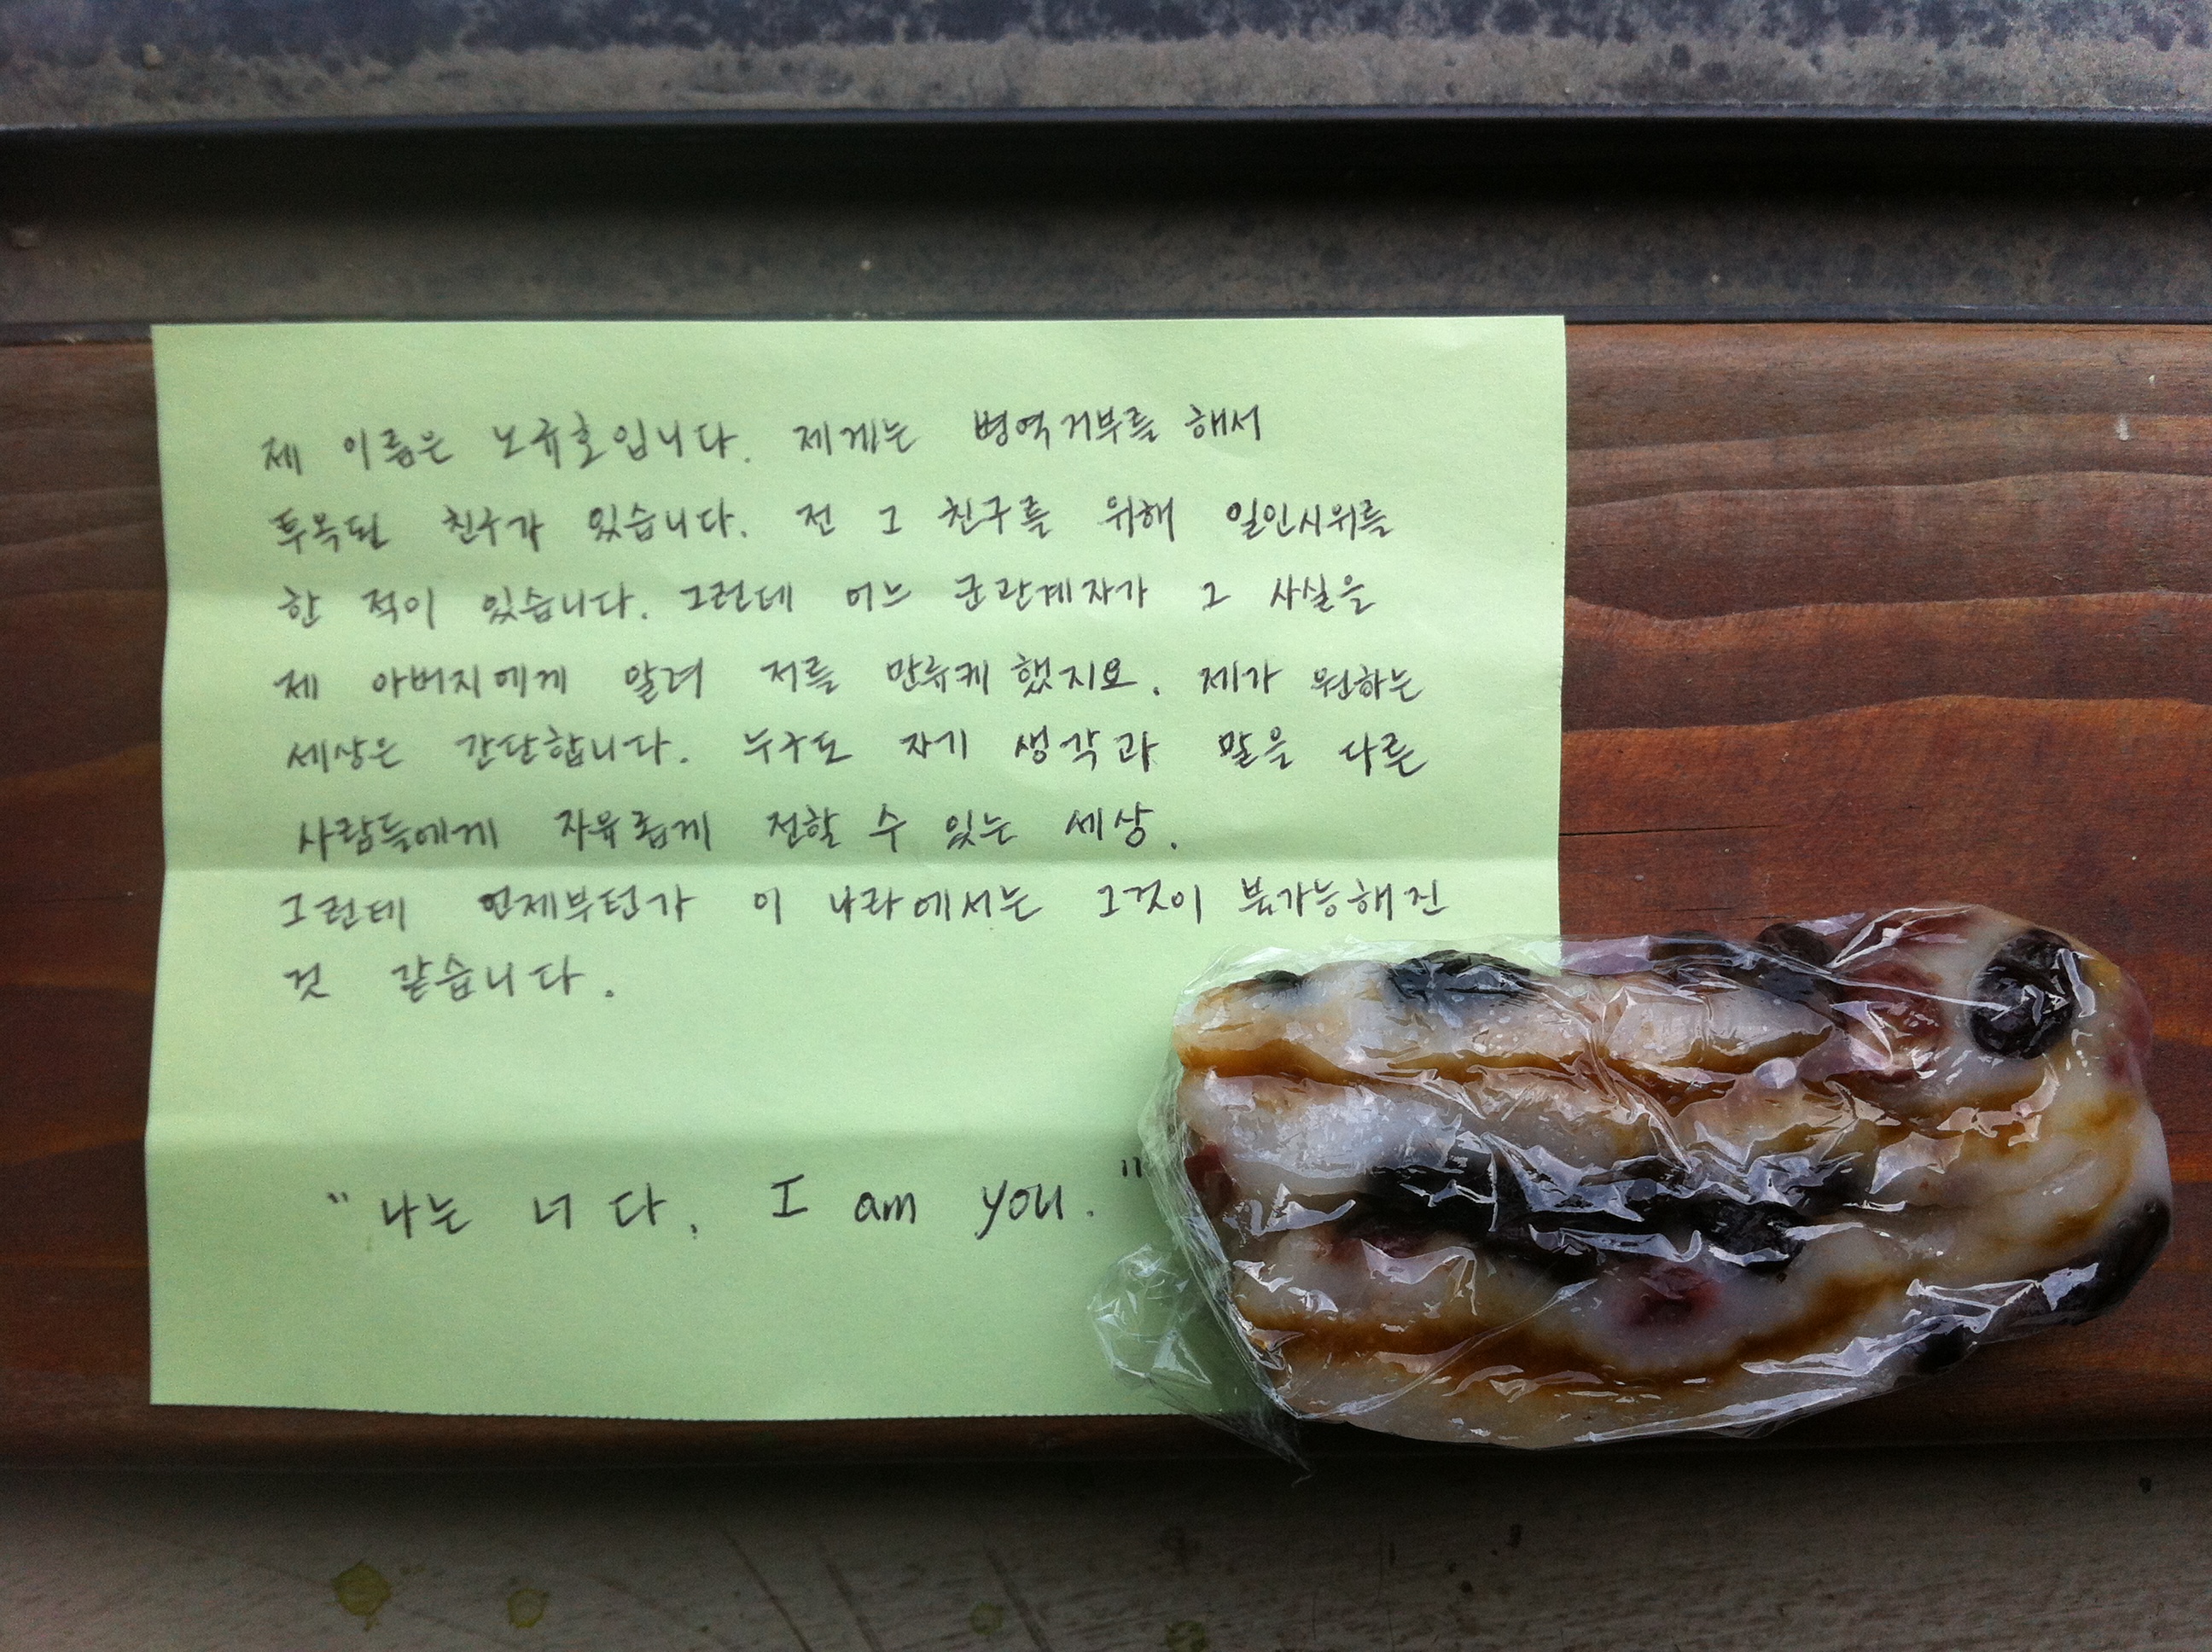 제 이름은 노규호입니다. 제게는 병역거부를 해서
투옥된 친구가 있습니다. 전 그 친구를 위해 일인시위를
한 적이 있습니다. 그런데 어느 군관계자가 그 사실을
제 아버지에게 알려 저를 만류케 했지요. 제가 원하는
세상은 간단합니다. 누구도 자기 생각과 말을 다른
사람들에게 자유롭게 전할 수 있는 세상.
그런데 언제부턴가 이 나라에서는 그것이 불가능해진
것 같습니다.
"나는 너다. I am you."